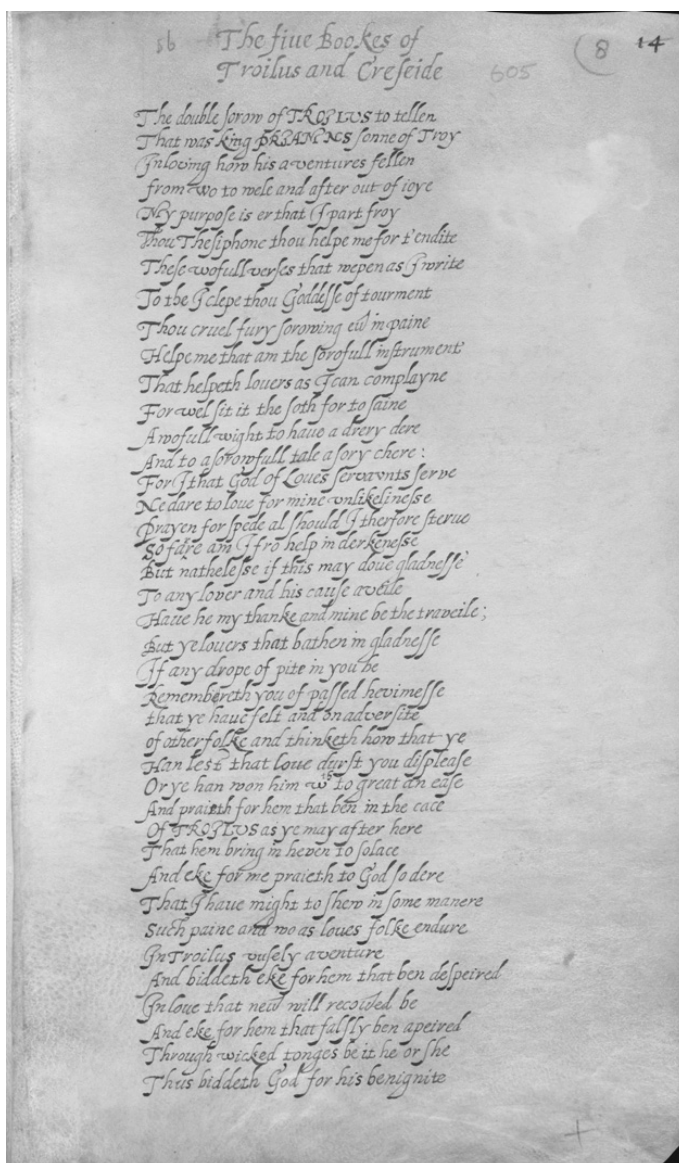 56 The fiue Bookes of (8 14
Troilus and Creseide 605
The double sorow of TROILUS to tellen
That was king PRIAMUS sonne of Troy
In loving how his aventures fellen
from wo to wele and after out of ioye
My purpose is er that I part froy
Thou Thesiphone thou helpe me for t'endite
These wofull verses that wepen as I write
To the I clepe thou Goddesse of tourment
Thou cruel fury sorowing eu in paine
Helpe me that am the sorofull instrument
That helpeth louers as I can complayne
For wel sit it the soth for to saine
A wofull wight to haue a drery dere
And to a sorowfull tale a sory chere :
For I that God of Loues servaunts serve
Ne dare to loue for mine unlikelinesse
Prayen for spede al should I therfore sterue
So farre am I fro help in derkenesse
But nathelesse if this may doue gladnesse
To any lover and his cause aveile
Haue he my thanke and mine be the traveile ;
But ye louers that bathen in gladnesse
If any drope of pite in you be
Remembereth you of passed hevinesse
that ye haue felt and on adversite
of other folke and thinketh how that ye
Han lest that loue durst you displease
Or ye han won him wt to great an ease
And praieth for hem that ben in the cace
Of TROILUS as ye may after here
That hem bring in heven to solace
And eke for me praieth to God so dere
That I haue might to shew in some manere
Such paine and wo as loues folke endure
In Troilus vusely aventure
And biddeth eke for hem that ben despeired
In loue that neu will recoued be
And eke for hem that falsly ben apeired
Through wicked tonges be it he or she
Thus biddeth God for his benignite